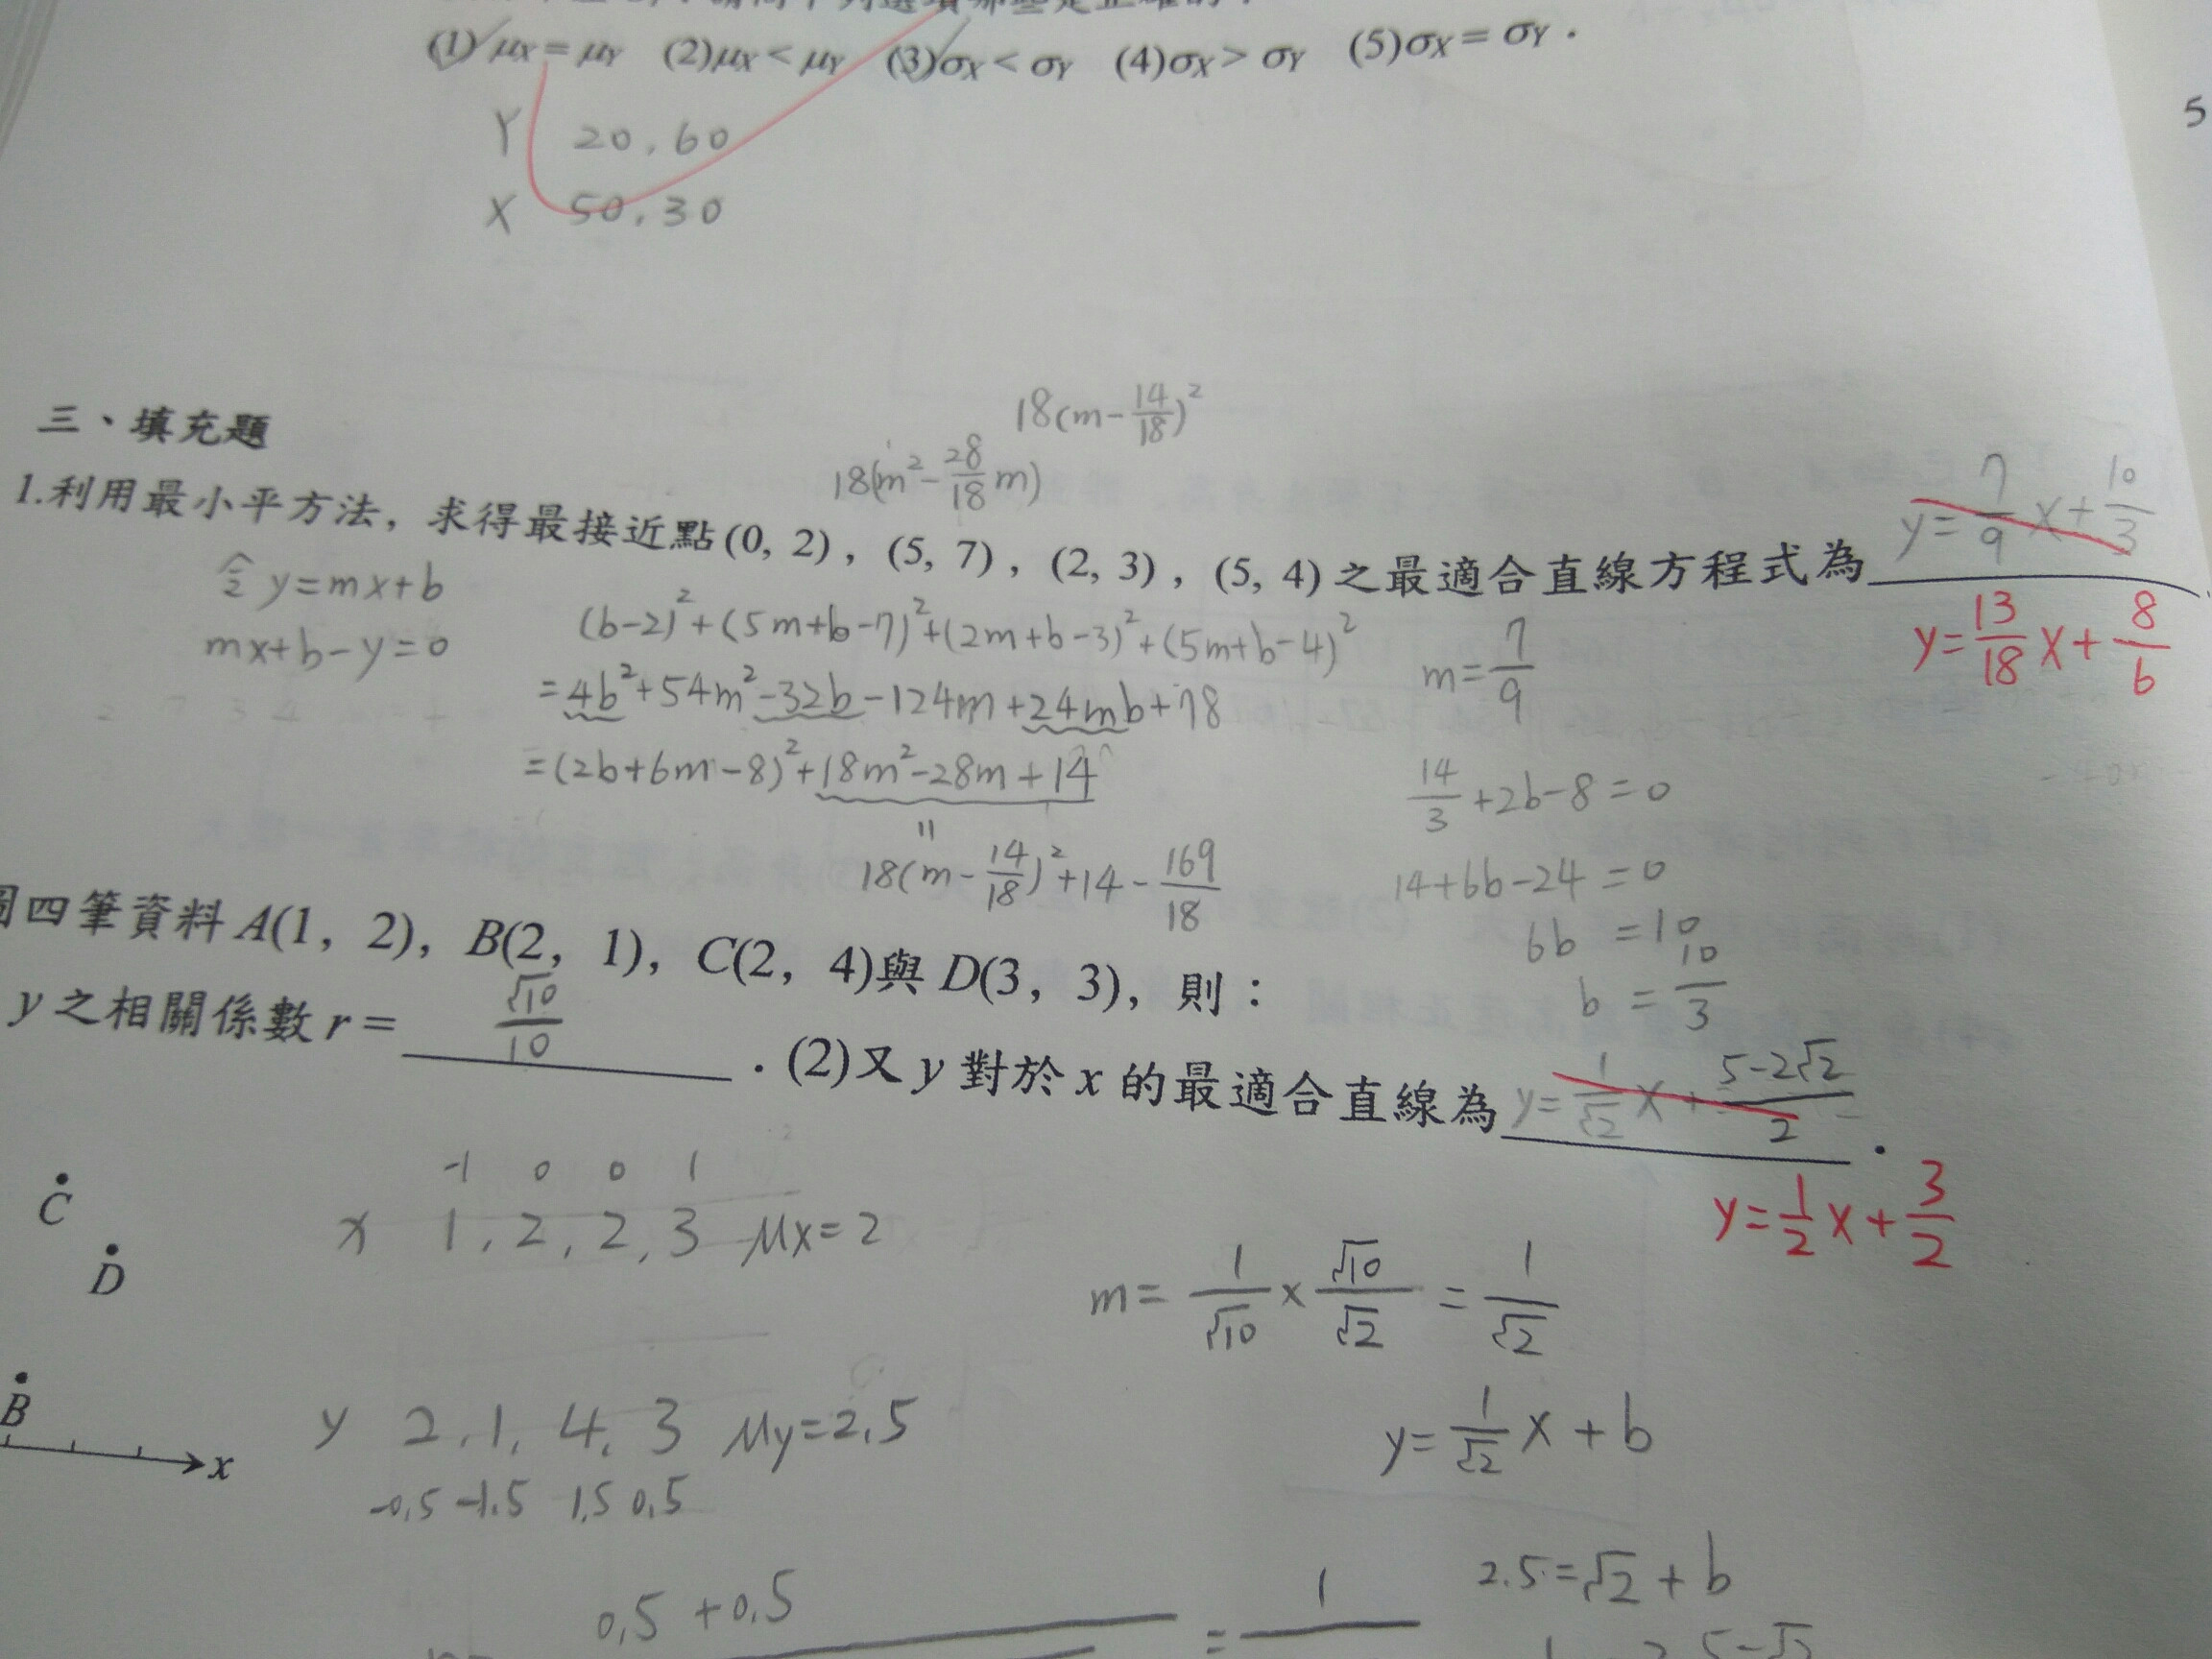 (1) μX = μY (2)μX < μY (3)σX < σY (4)σX > σY (5)σX = σY .
5
Y 20,60
X 50,30
三、填充題
18(m-14/18)²
18(m²-28/18 m)
1.利用最小平方法，求得最接近點(0, 2)，(5, 7)，(2, 3)，(5, 4)之最適合直線方程式為
y=7/9 x+10/3
y=13/18 x+8/6
令 y=mx+b
mx+b-y=0
(b-2)²+(5m+b-7)²+(2m+b-3)²+(5m+b-4)²
=4b²+54m²-32b-124m+24mb+78
=(2b+6m-8)²+18m²-28m+14
=
18(m-14/18)²+14-169/18
m=7/9
14/3+2b-8=0
14+6b-24=0
6b=10
b=10/3
四筆資料A(1，2)，B(2，1)，C(2，4)與D(3，3)，則：
y之相關係數r= √10/10 .(2)又y對於x的最適合直線為 y=1/√2 x+(5-2√2)/2 .
y=1/2 x+3/2
C
D
B
x
-1 0 0 1
x 1,2,2,3 μx=2
y 2,1,4,3 μy=2.5
-0.5 -1.5 1.5 0.5
m=1/√10×√10/√2=1/√2
y=1/√2 x+b
2.5=√2+b
0.5+0.5
= 1